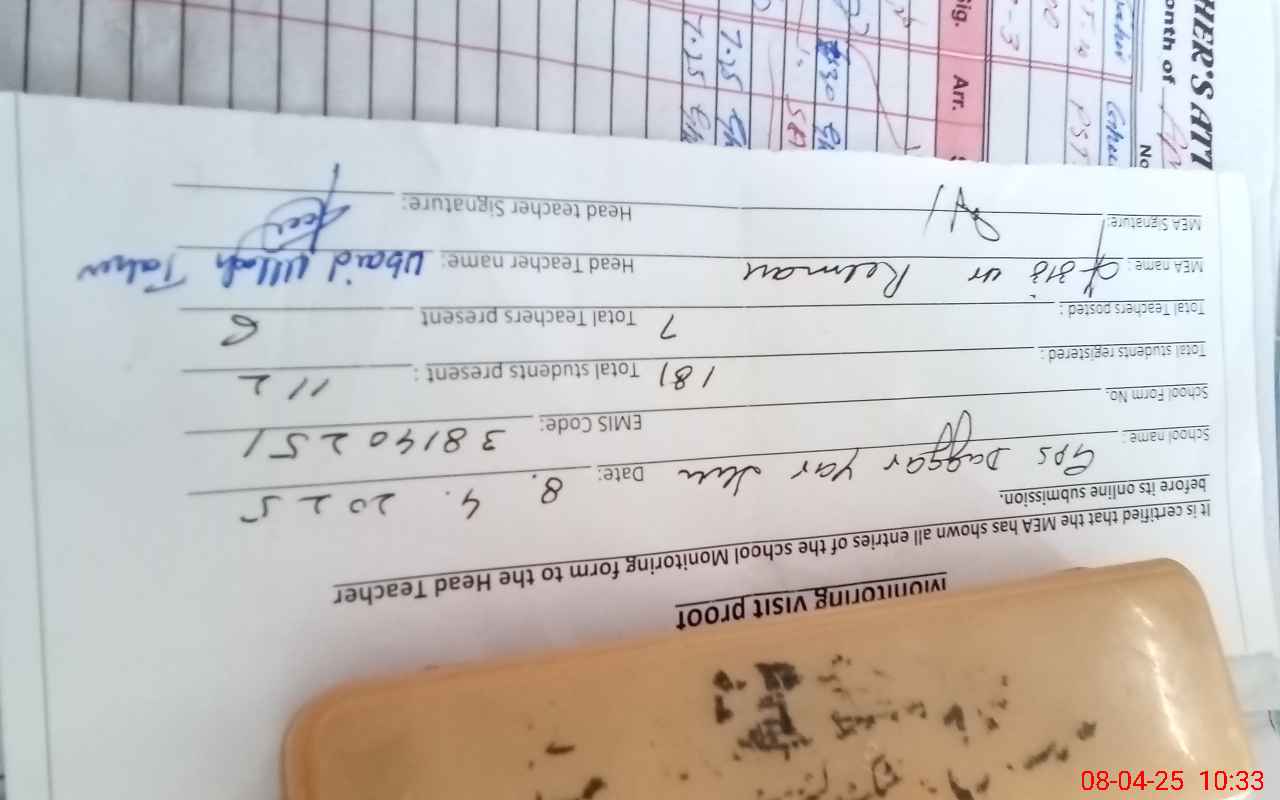 Monitoring visit proof
It is certified that the MEA has shown all entries of the school Monitoring form to the Head Teacher
before its online submission.
School name: GPS Daggar Yar Date: 8. 4. 2025
School Form No. EMIS Code: 38140251
Total students registered: 181 Total students present: 112
Total Teachers posted: 7 Total Teachers present 6
MEA name: ur Rehman Head Teacher name: Ubaid Ullah
MEA Signature: Head teacher Signature:
HER'S ATT
onth of
No
Sig. Arr.
PST
7.25
7.25
08-04-25 10:33